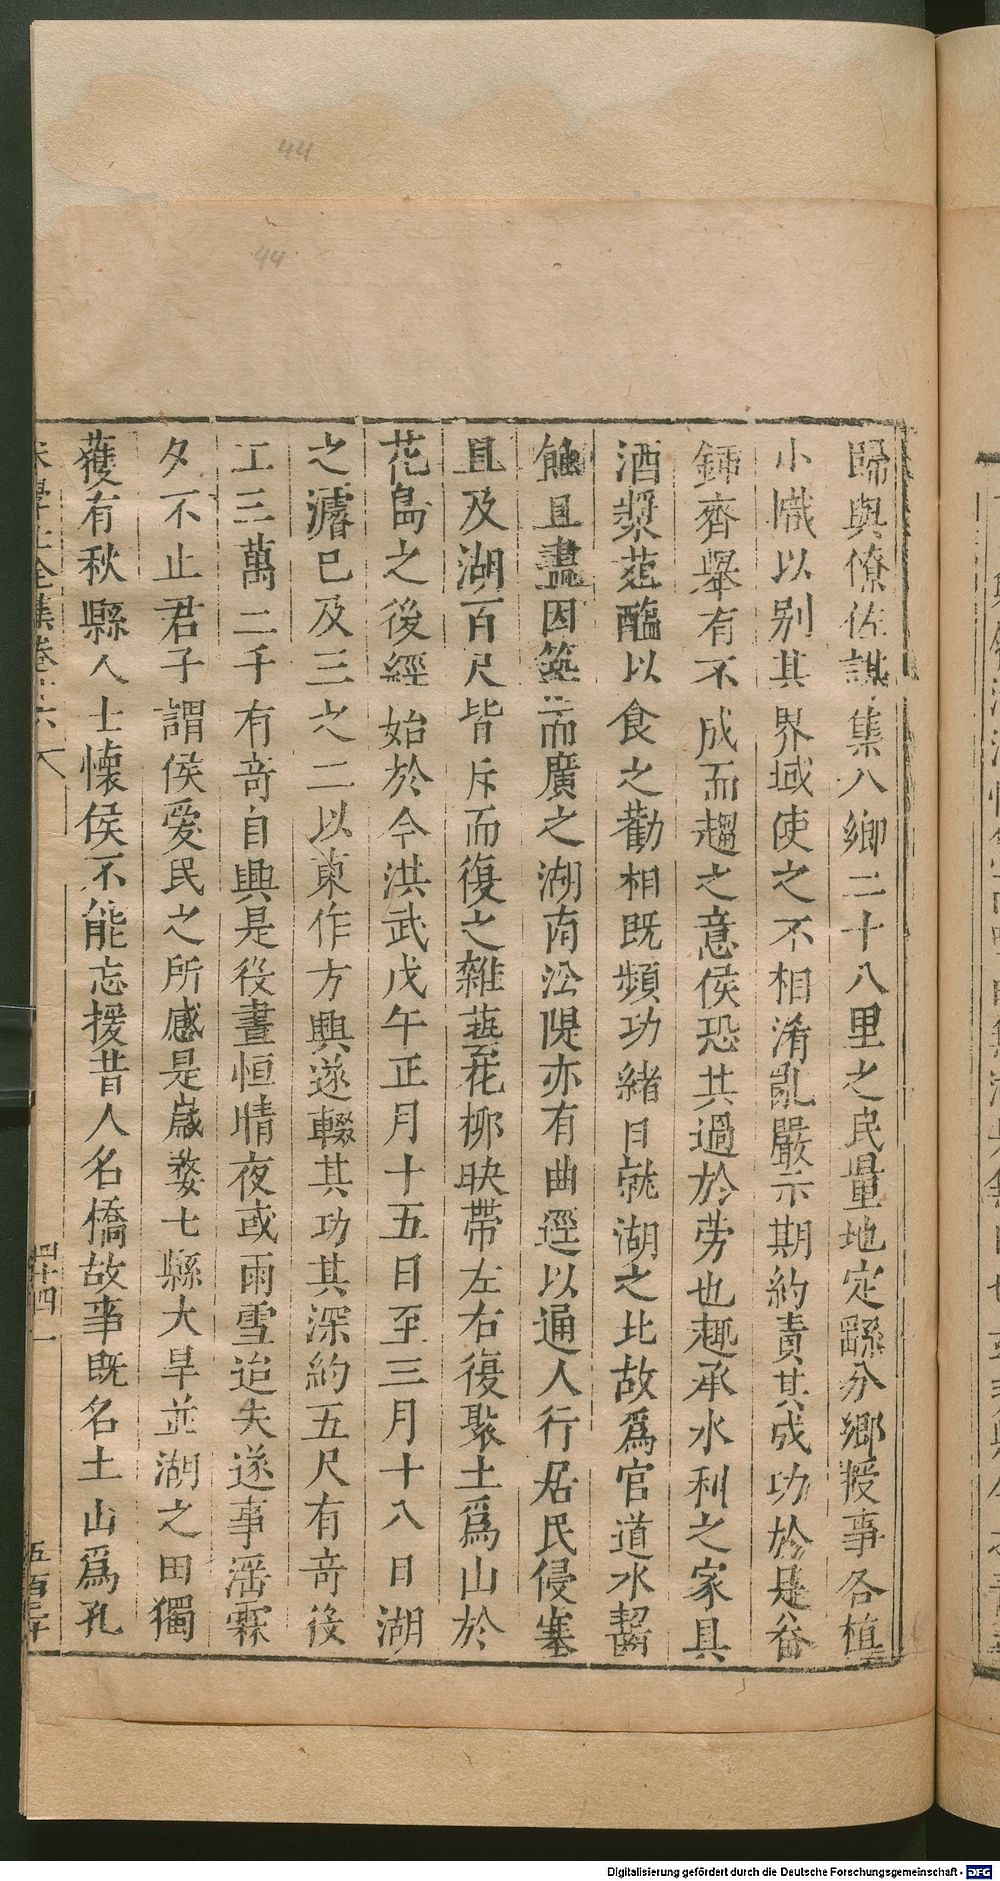 44
44
歸與僚佐謀集八鄉二十八里之民量地定繇分鄉授事各植
小幟以别其界域使之不相淆亂嚴示期約責其成功於是畚
鍤齊舉有不成而趨之意侯恐其過於劳也趣承水利之家具
酒漿葅醢以食之勸相既頻功緒日就湖之北故爲官道水齧
蝕且盡因築而廣之湖南㳂隄亦有曲逕以通人行居民侵塞
且及湖百尺皆斥而復之雜蓺花柳映帶左右復聚土爲山於
花島之後經始於今洪武戊午正月十五日至三月十八日湖
之濬已及三之二以東作方興遂輟其功其深約五尺有奇役
工三萬二千有奇自興是役晝恒晴夜或雨雪迨夫遂事滛霖
夕不止君子謂侯愛民之所感是嵗婺七縣大旱並湖之田獨
獲有秋縣人士懷侯不能忘援昔人名橋故事既名土山爲孔
學士全集卷
Digitalisierung gefördert durch die Deutsche Forschungsgemeinschaft - DFG